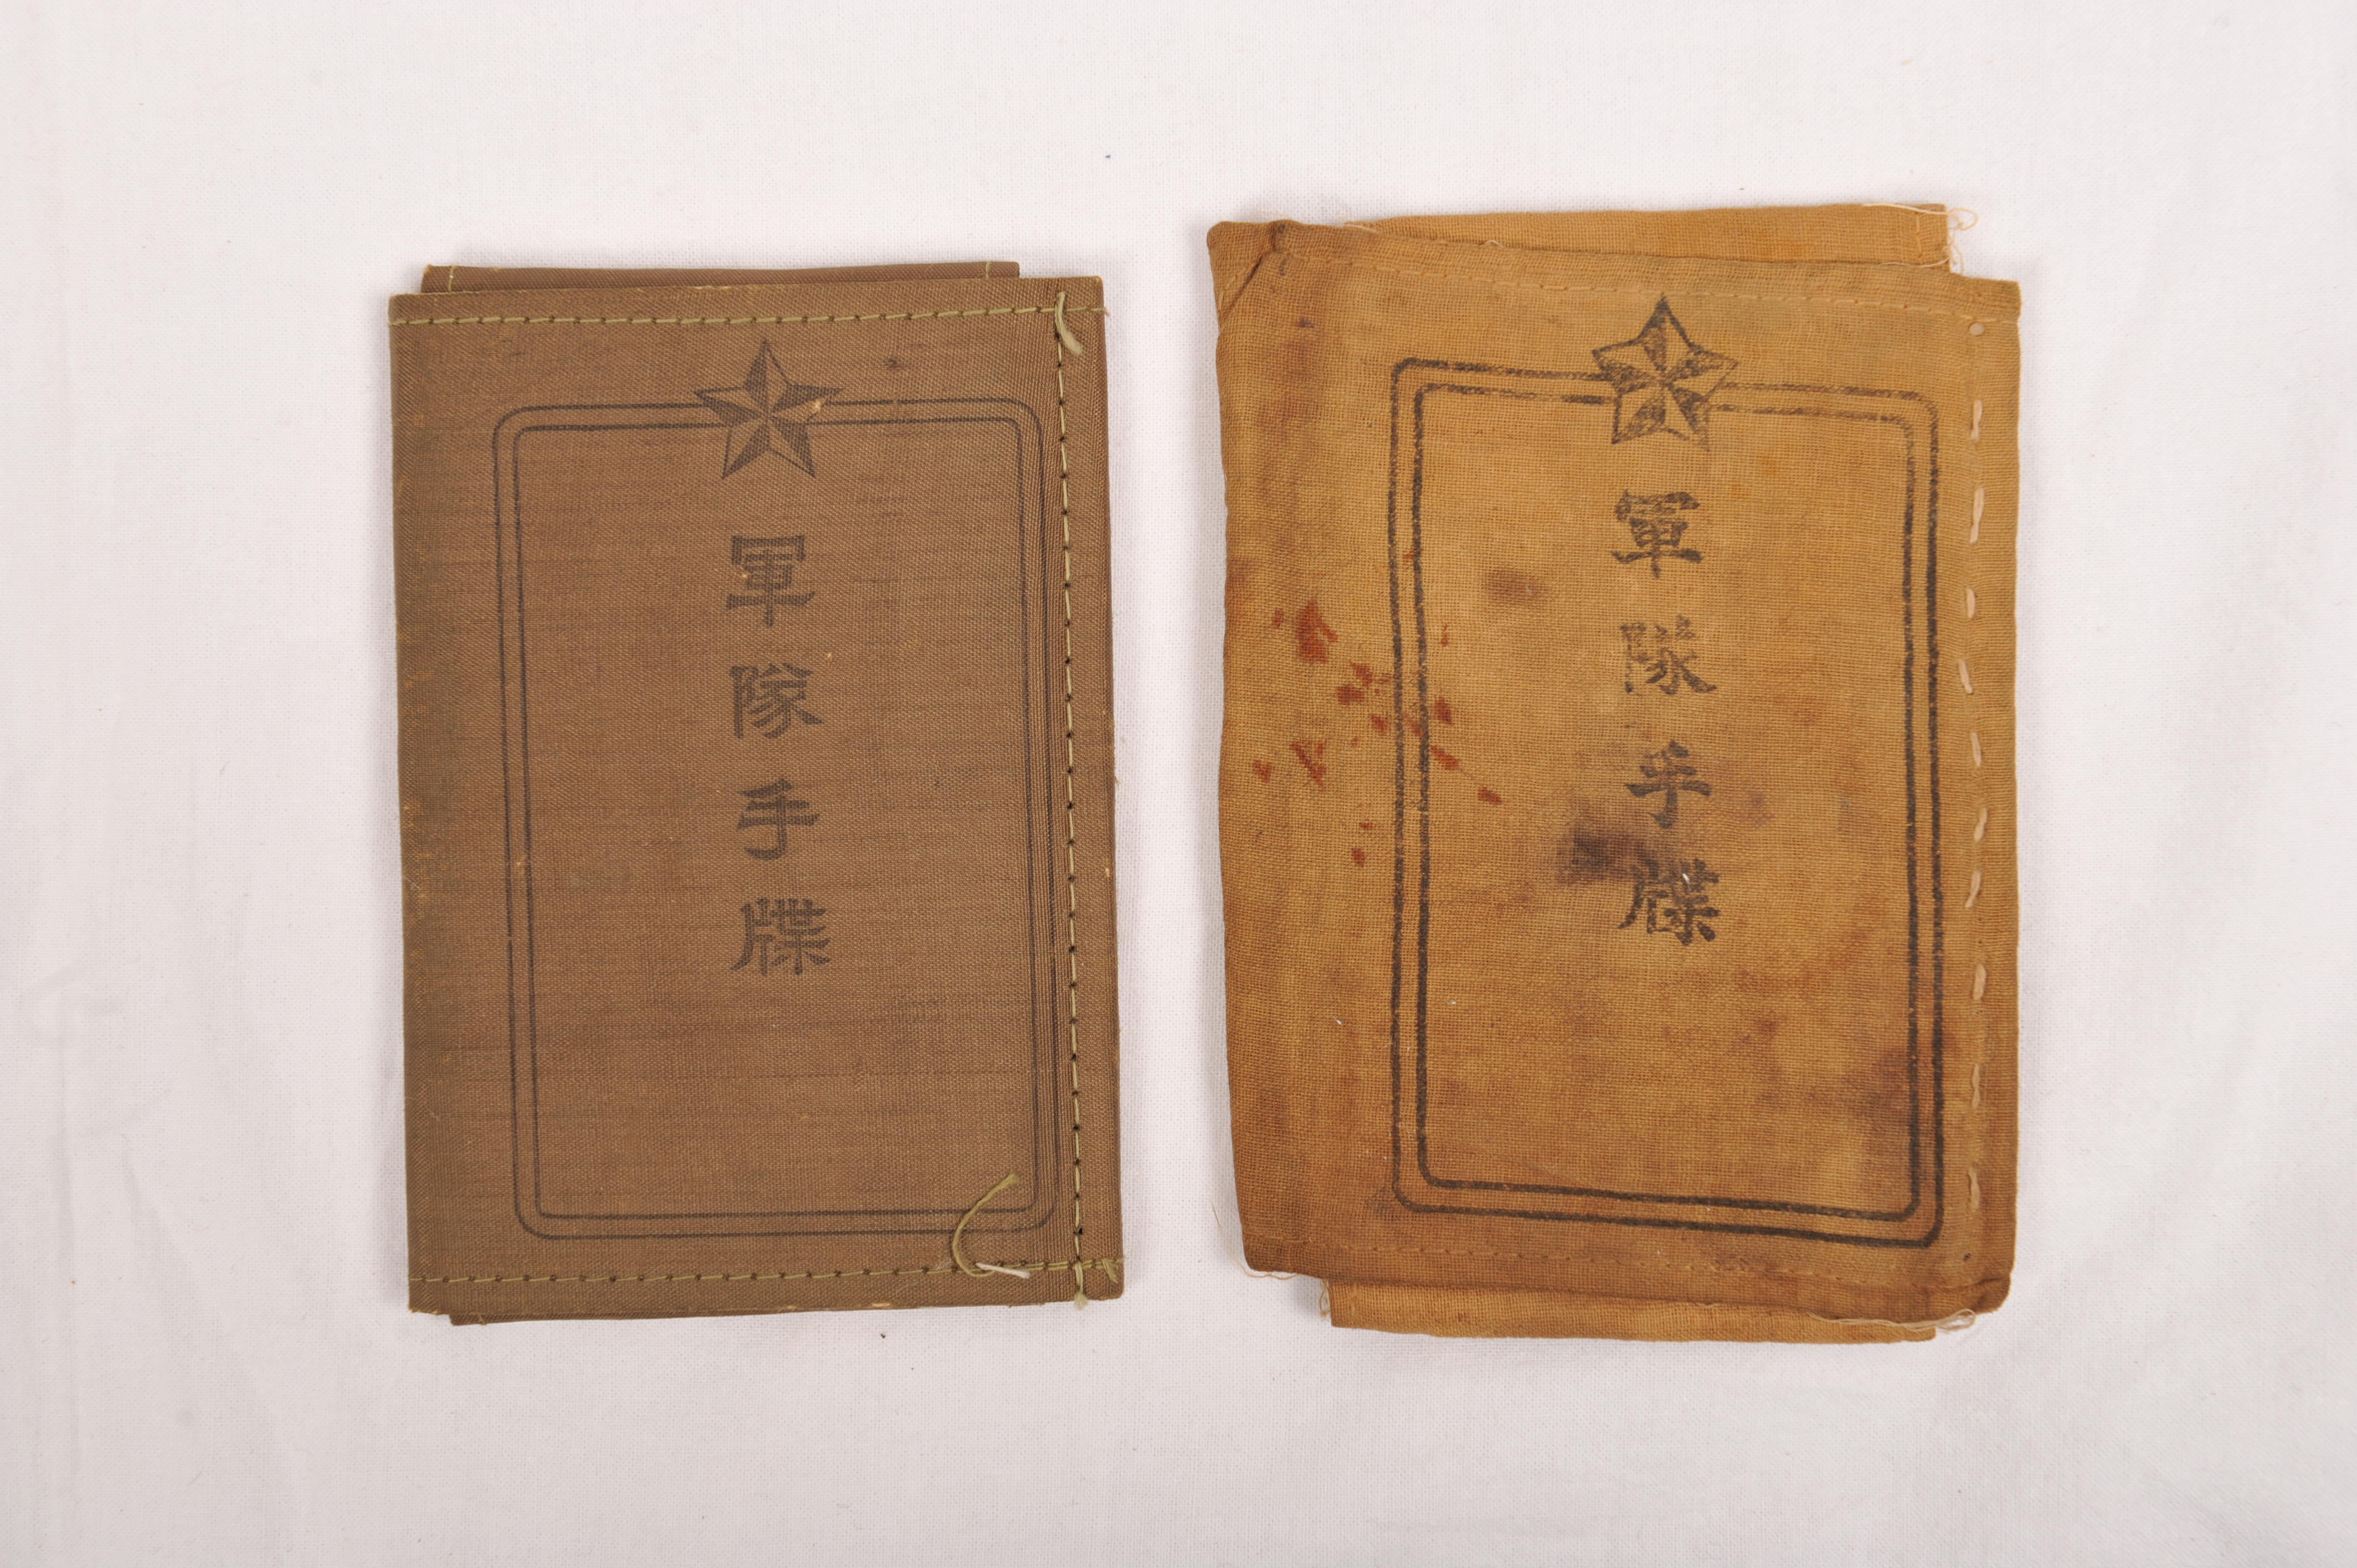 軍隊手牒
軍隊手牒